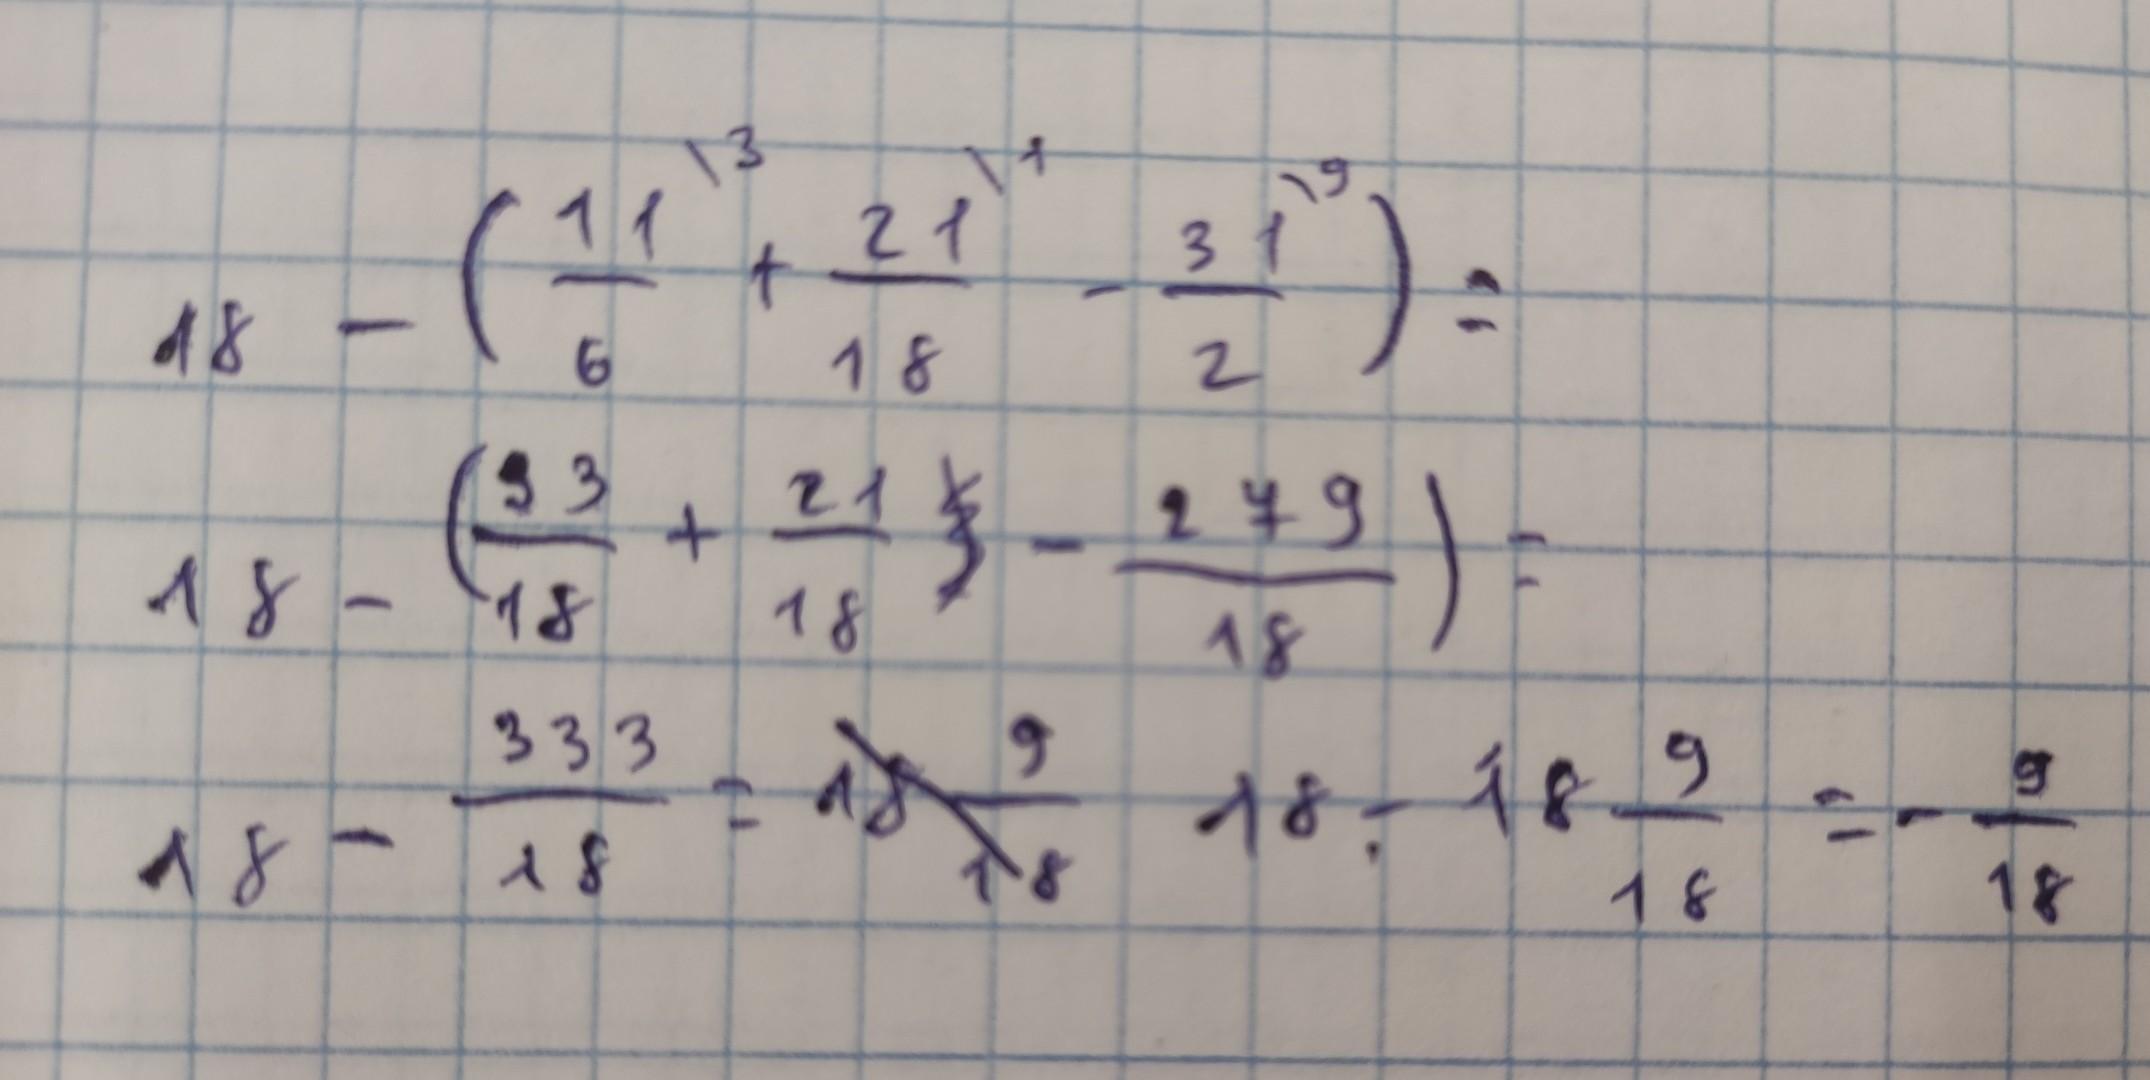 18 - (11/6 \3 + 21/18 \1 - 31/2 \9) =
18 - (33/18 + 21/18 - 279/18) =
18 - 333/18 = 18 9/18 18 - 18 9/18 = - 9/18